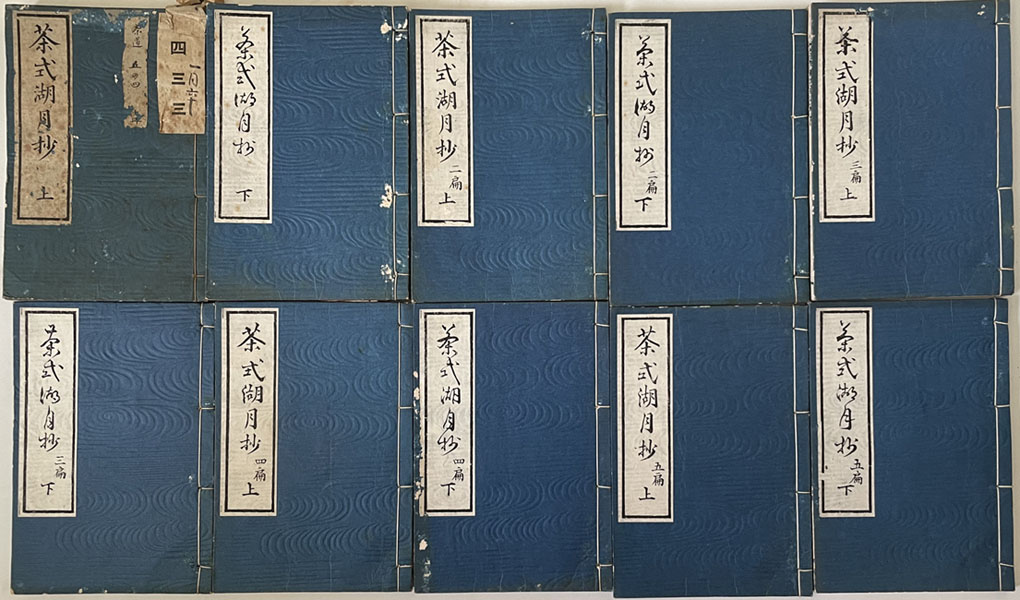 茶式湖月抄 上
茶道 五
四三三
一月六
茶式湖月抄 下
茶式湖月抄 二扁 上
茶式湖月抄 二扁 下
茶式湖月抄 三扁 上
茶式湖月抄 三扁 下
茶式湖月抄 四扁 上
茶式湖月抄 四扁 下
茶式湖月抄 五扁 上
茶式湖月抄 五扁 下